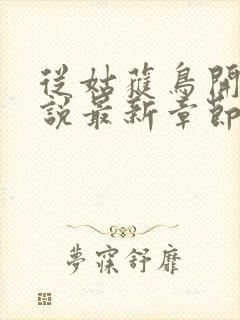 從姑蘇鳥開
說最新章節
夢寐舒靡